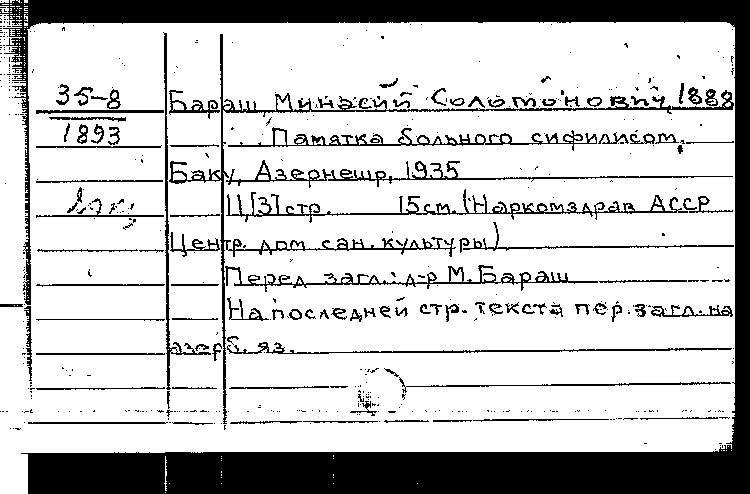 35-8
1893
Бараш, Минасий Соломонович, 1888
Памятка больного сифилисом.
Баку, Азернешр, 1935
11,[3] стр. 15см. (Наркомздрав АССР
Центр. дом сан. культуры)
Перед загл.: д-р М. Бараш
На последней стр. текста пер. загл. на
азерб. яз.